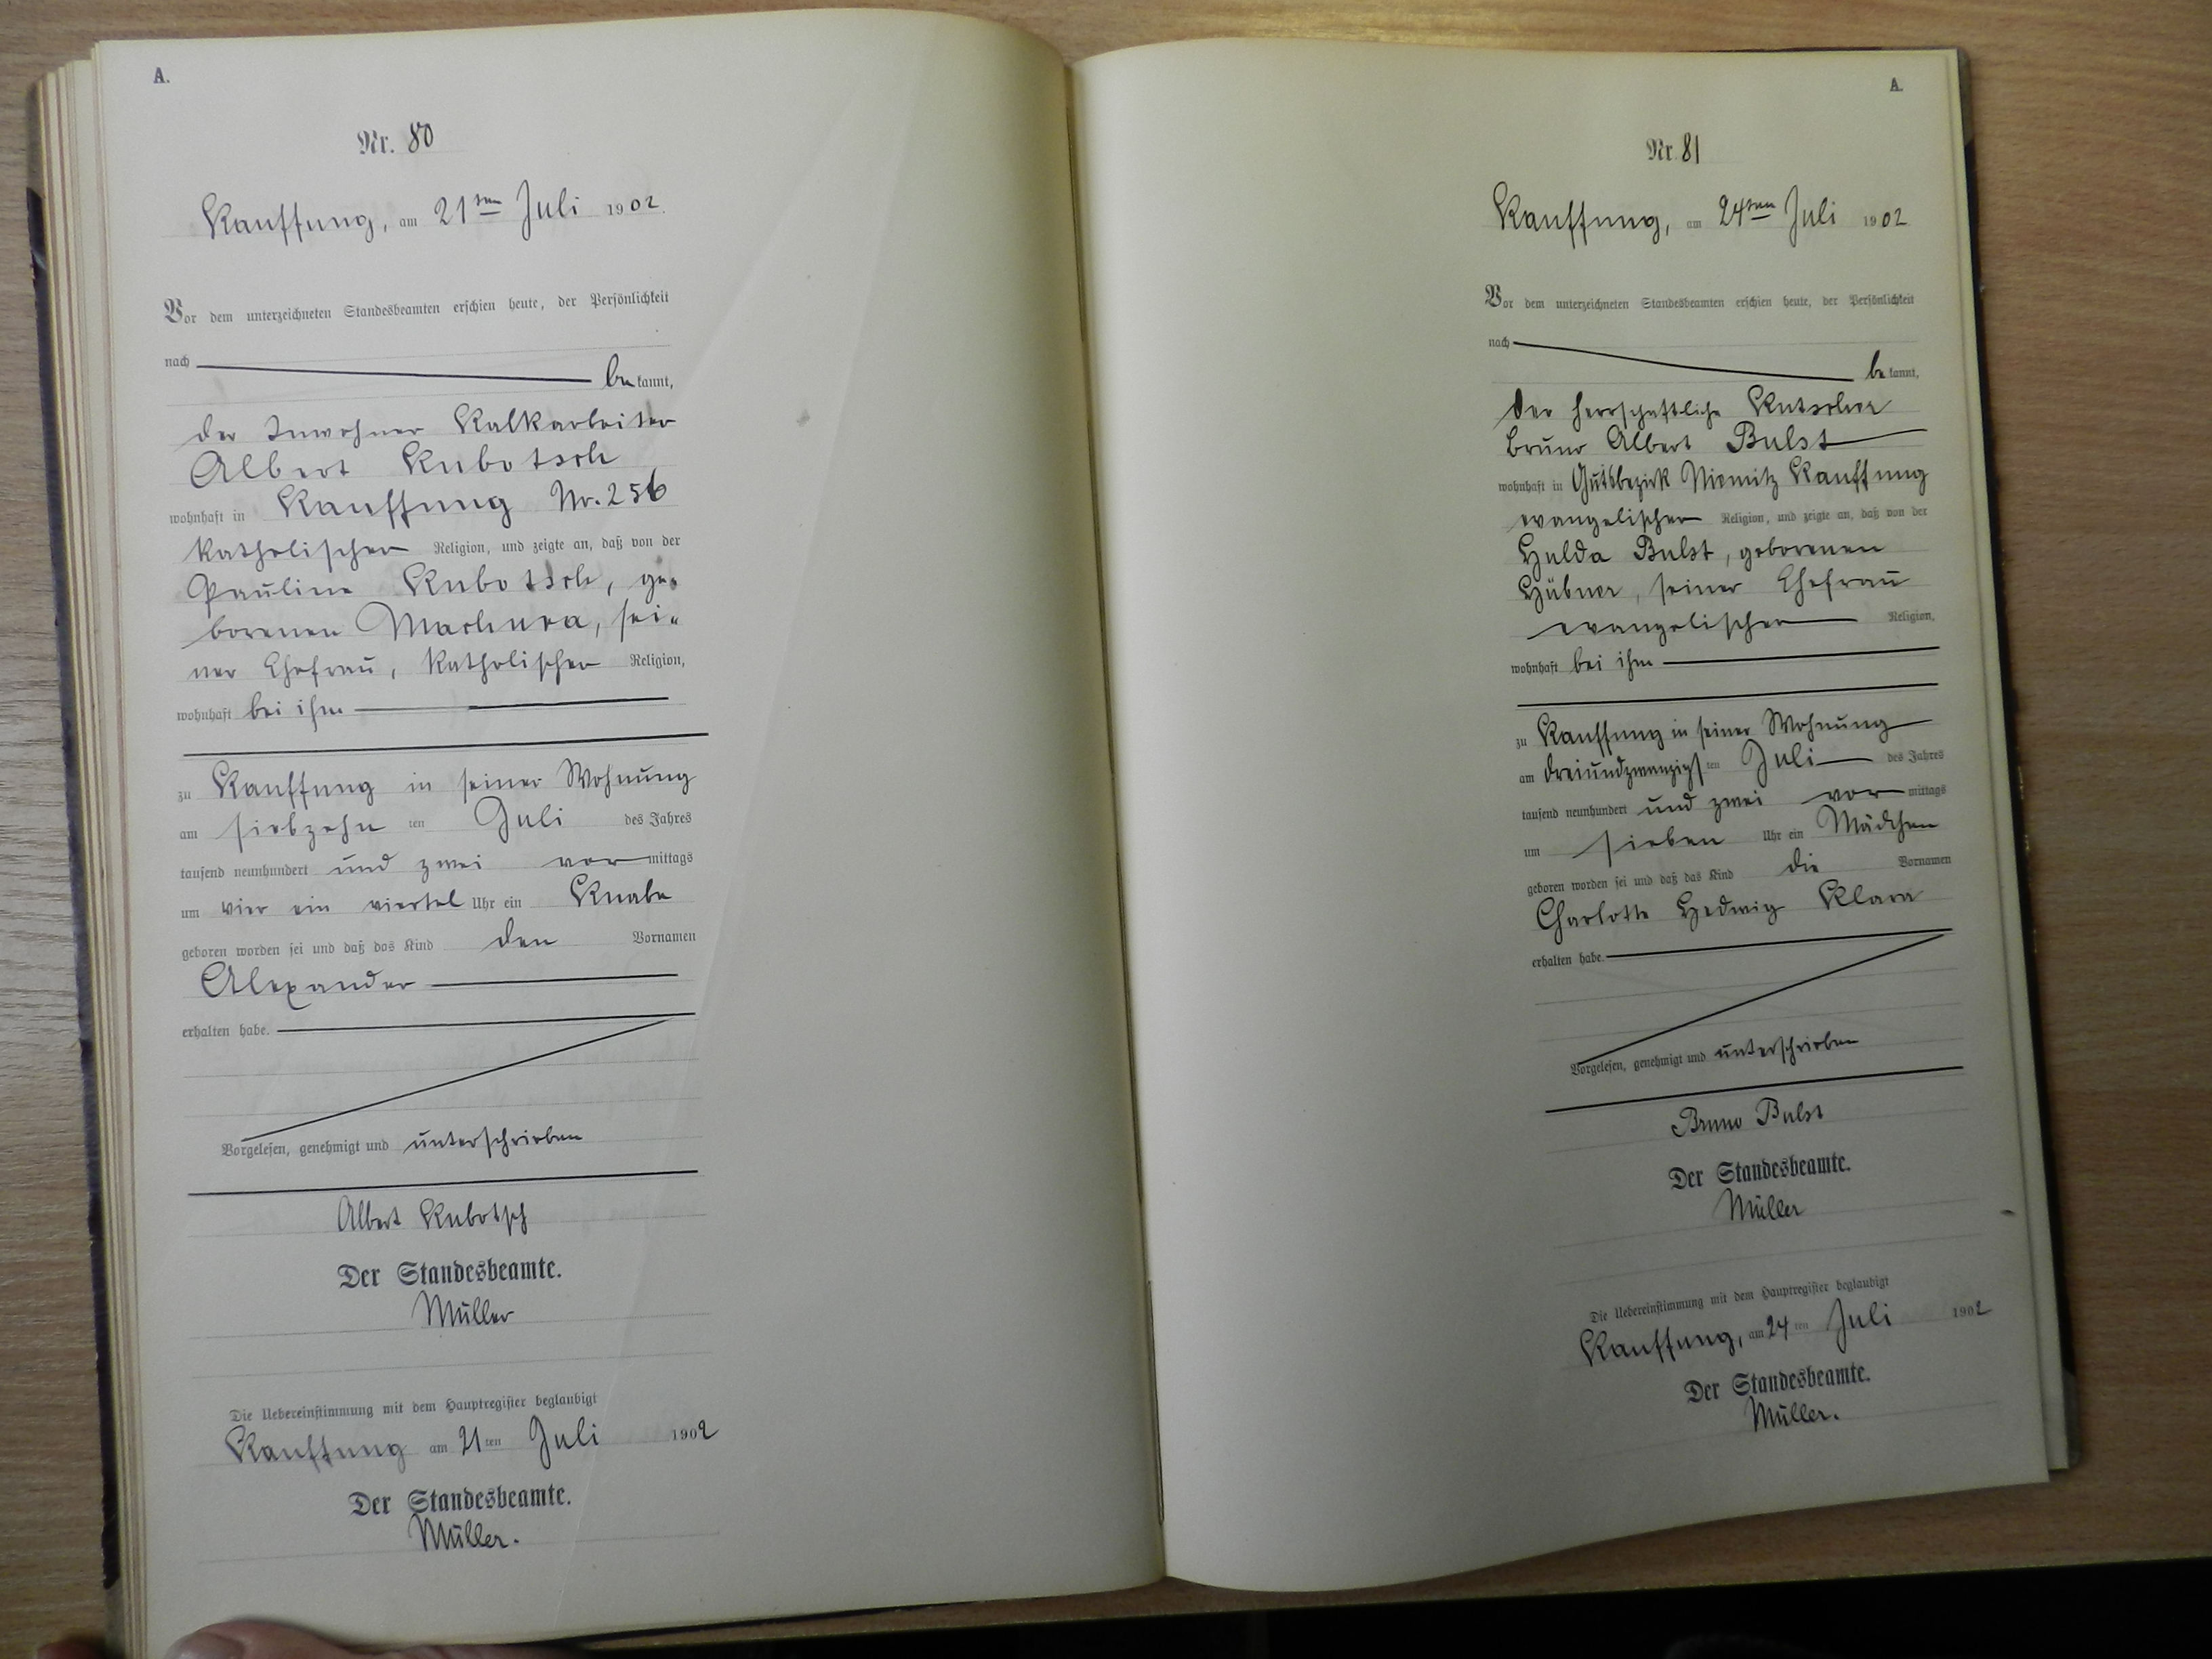 A.
Nr. 80
Kauffung, am 21ten Juli 1902.
Vor dem unterzeichneten Standesbeamten erschien heute, der Persönlichkeit
nach
be kannt,
der Inwohner Kalkarbeiter
Albert Kubotsch
wohnhaft in Kauffung Nr. 256
katholischer Religion, und zeigte an, daß von der
Pauline Kubotsch, ge-
borenen Machura, sei-
ner Ehefrau, katholischer Religion,
wohnhaft bei ihm
zu Kauffung in seiner Wohnung
am siebzehn ten Juli des Jahres
tausend neunhundert und zwei vor mittags
um vier ein viertel Uhr ein Knabe
geboren worden sei und daß das Kind den Vornamen
Alexander
erhalten habe.
Vorgelesen, genehmigt und unterschrieben
Albert Kubotsch
Der Standesbeamte.
Müller
Die Uebereinstimmung mit dem Hauptregister beglaubigt
Kauffung am 21 ten Juli 1902
Der Standesbeamte.
Müller.
A.
Nr. 81
Kauffung, am 24ten Juli 1902
Vor dem unterzeichneten Standesbeamten erschien heute, der Persönlichkeit
nach
be kannt,
der herrschaftliche Kutscher
Bruno Albert Bulst
wohnhaft in Gutsbezirk Niemitz Kauffung
evangelischer Religion, und zeigte an, daß von der
Hulda Bulst, geborenen
Hübner, seiner Ehefrau
evangelischer Religion,
wohnhaft bei ihm
zu Kauffung in seiner Wohnung
am dreiundzwanzigs ten Juli des Jahres
tausend neunhundert und zwei vor mittags
um sieben Uhr ein Mädchen
geboren worden sei und daß das Kind die Vornamen
Charlotte Hedwig Klara
erhalten habe.
Vorgelesen, genehmigt und unterschrieben
Bruno Bulst
Der Standesbeamte.
Müller
Die Uebereinstimmung mit dem Hauptregister beglaubigt
Kauffung, am 24 ten Juli 1902
Der Standesbeamte.
Müller.